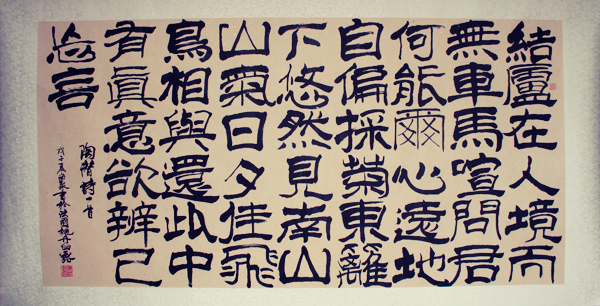 結廬在人境而
無車馬喧問君
何能爾心遠地
自偏採菊東籬
下悠然見南山
山氣日夕佳飛
鳥相與還此中
有眞意欲辨已
忘言
陶潛詩一首
戊子夏